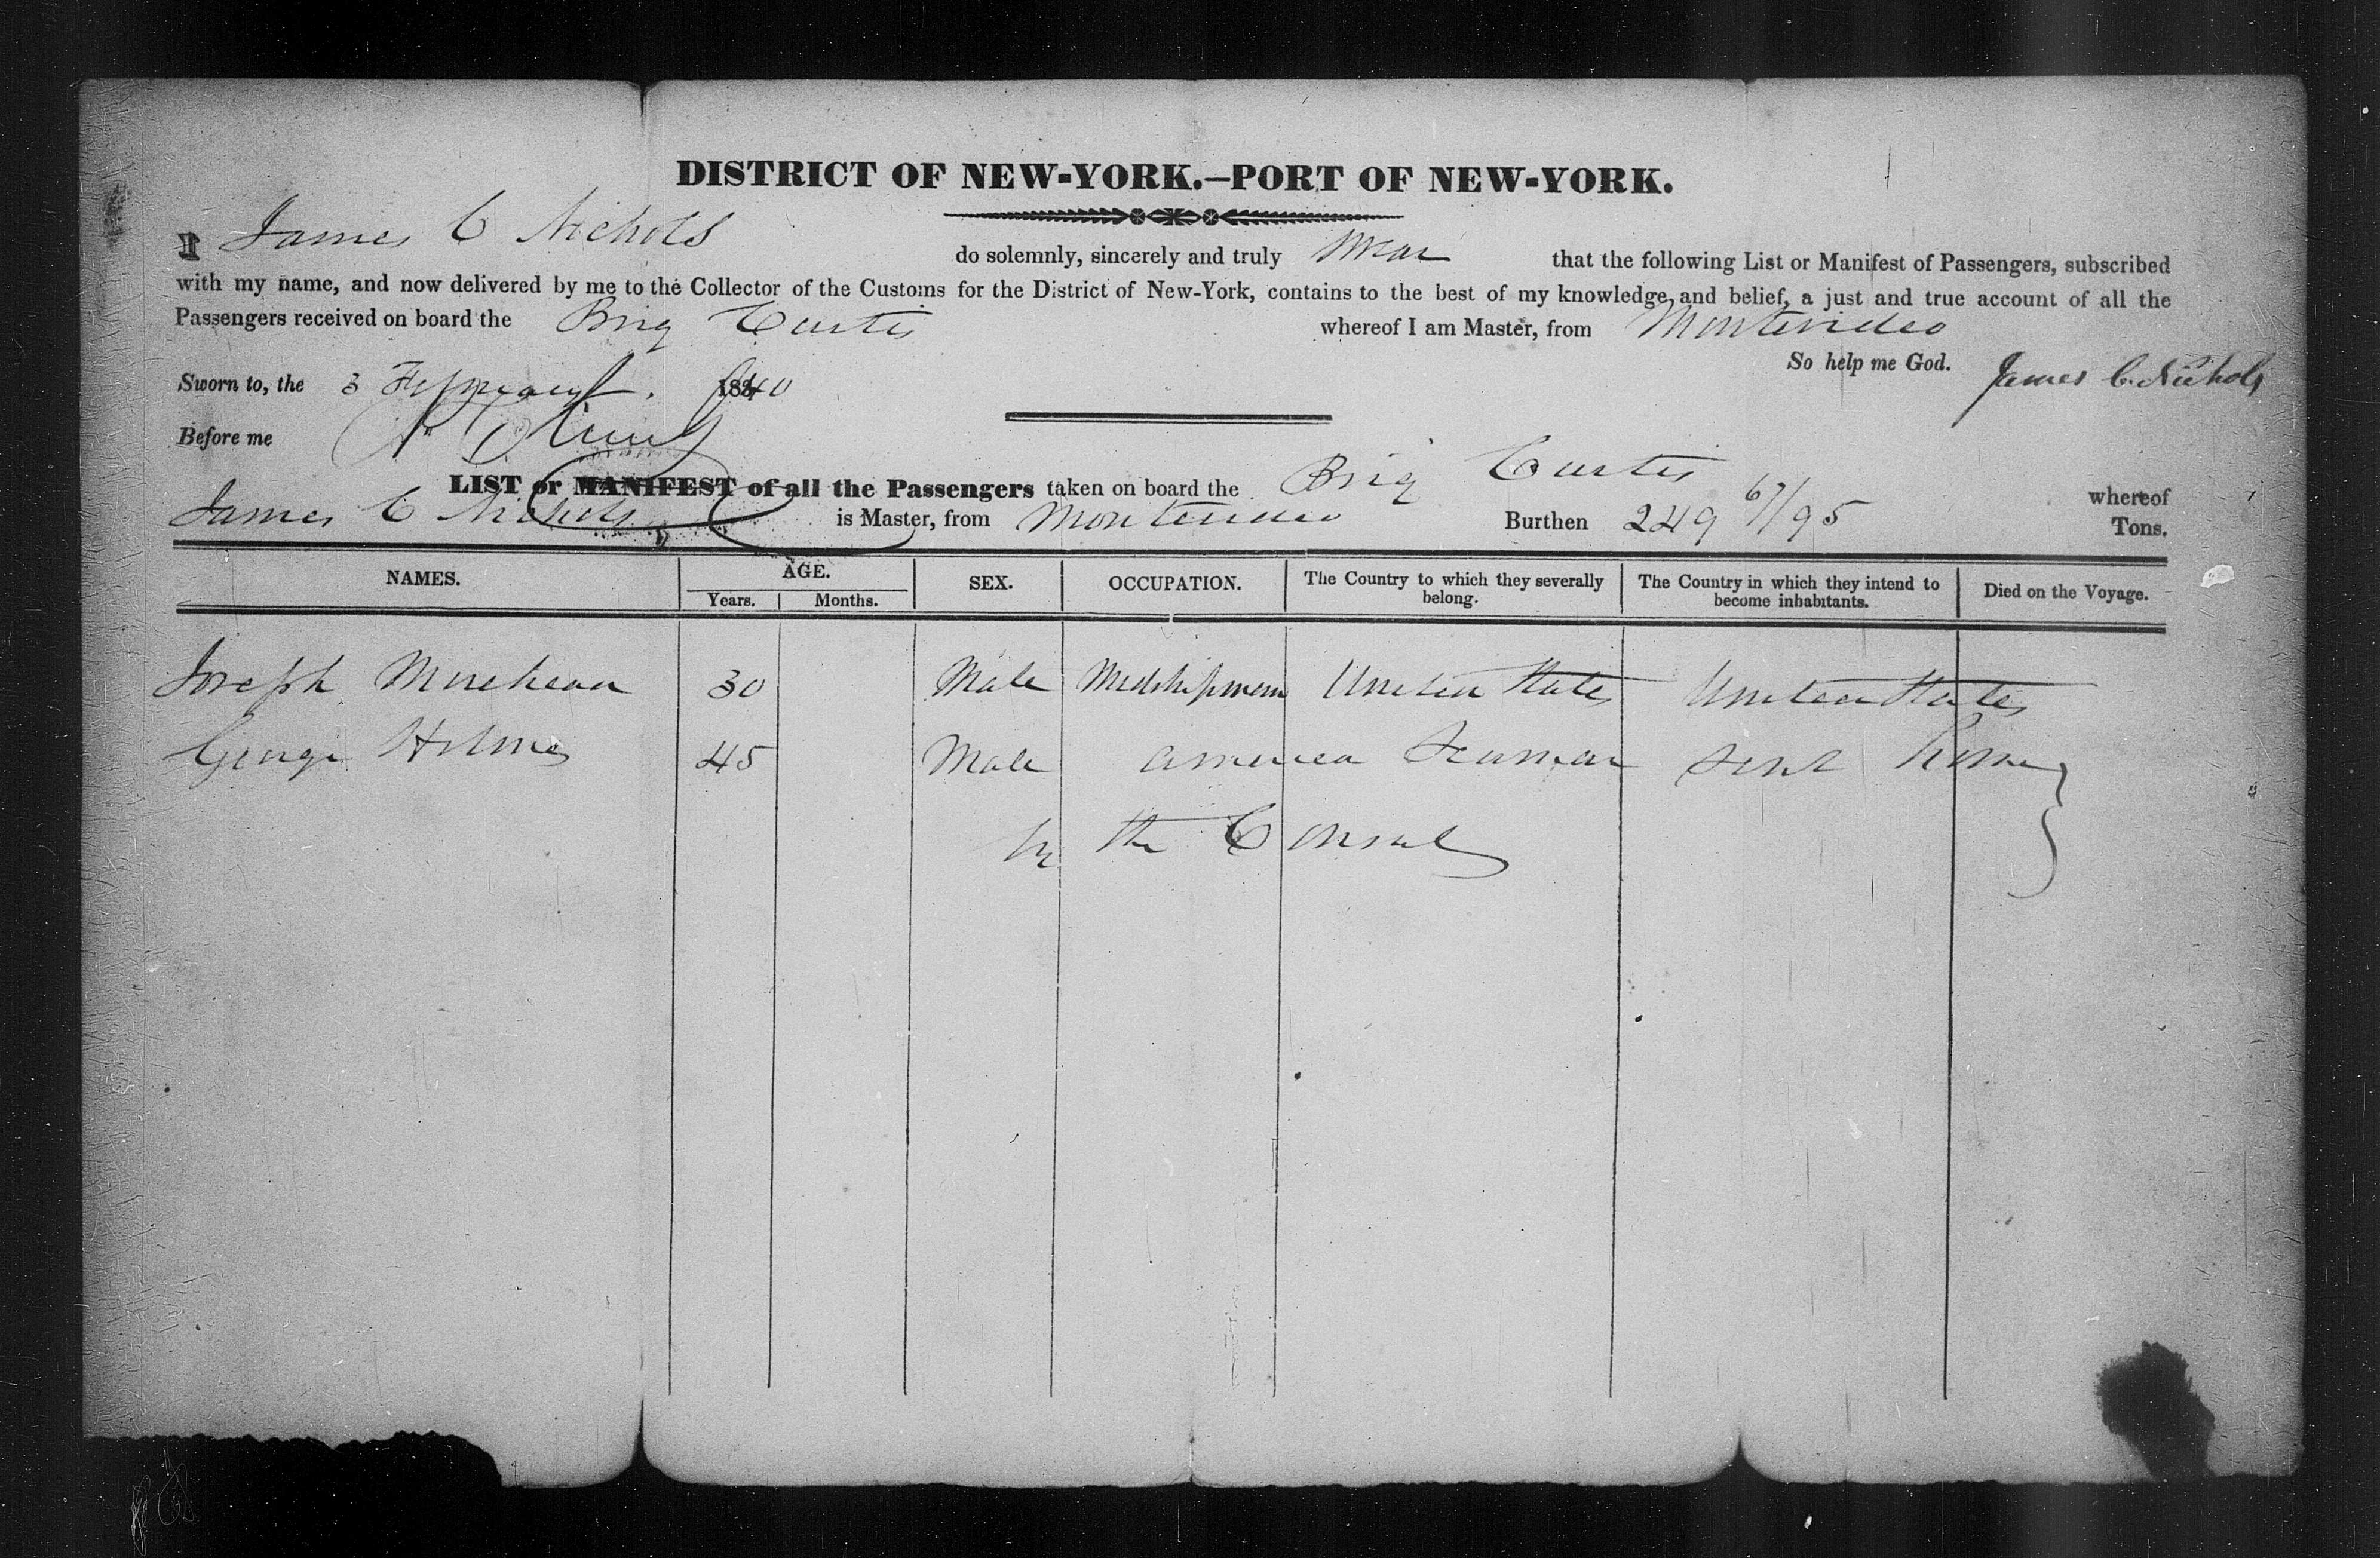 DISTRICT OF NEW-YORK.—PORT OF NEW-YORK.
I James C Nichols do solemnly, sincerely and truly swear that the following List or Manifest of Passengers, subscribed
with my name, and now delivered by me to the Collector of the Customs for the District of New-York, contains to the best of my knowledge and belief, a just and true account of all the
Passengers received on board the Brig Curtis whereof I am Master, from Montevideo
So help me God. James C. Nichols
Sworn to, the 3 February. 1840
Before me
LIST or MANIFEST of all the Passengers taken on board the Brig Curtis whereof
James C Nichols is Master, from Montevideo Burthen 249 67/95 Tons.
NAMES. AGE. SEX. OCCUPATION. The Country to which they severally belong. The Country in which they intend to become inhabitants. Died on the Voyage.
Years. Months.
Joseph 30 Male Midshipmem United States United States
George Holmes 45 Male America Seaman sent home
by the Consul